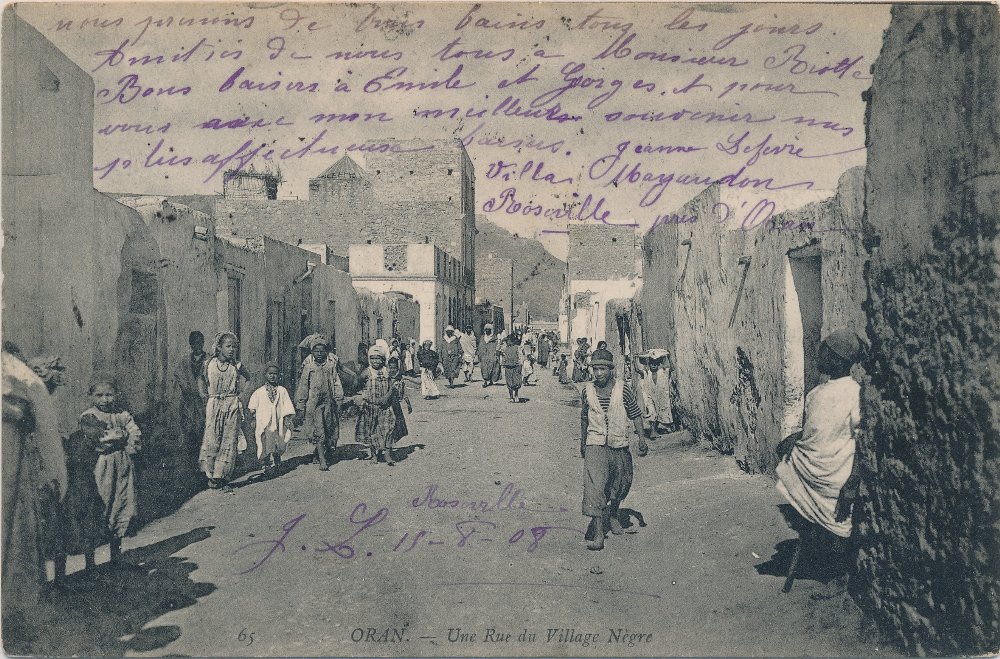 nous prenons de bons bains tous les jours.
Amitiés de nous tous à Monsieur
Bons baisers à Emile et Georges, et pour
vous avec mon meilleur souvenir mes
plus affectueux baisers. Jeanne Lefevre
Villa Magaudon
Roseville près d'Oran
Roseville
J. L. 15-8-08
65 ORAN. — Une Rue du Village Nègre